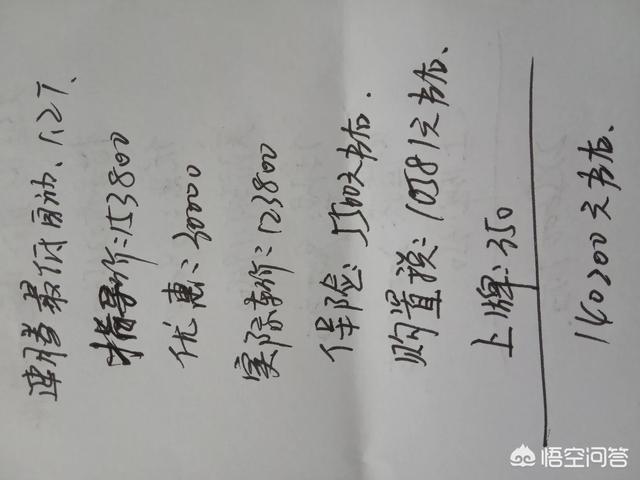 速腾最低自动、1.2T、
指导价:153800
优惠:30000
实际车价:123800
保险:5500元左右.
购置税:10581元左右、
上牌:350
140200元左右、
悟空问答